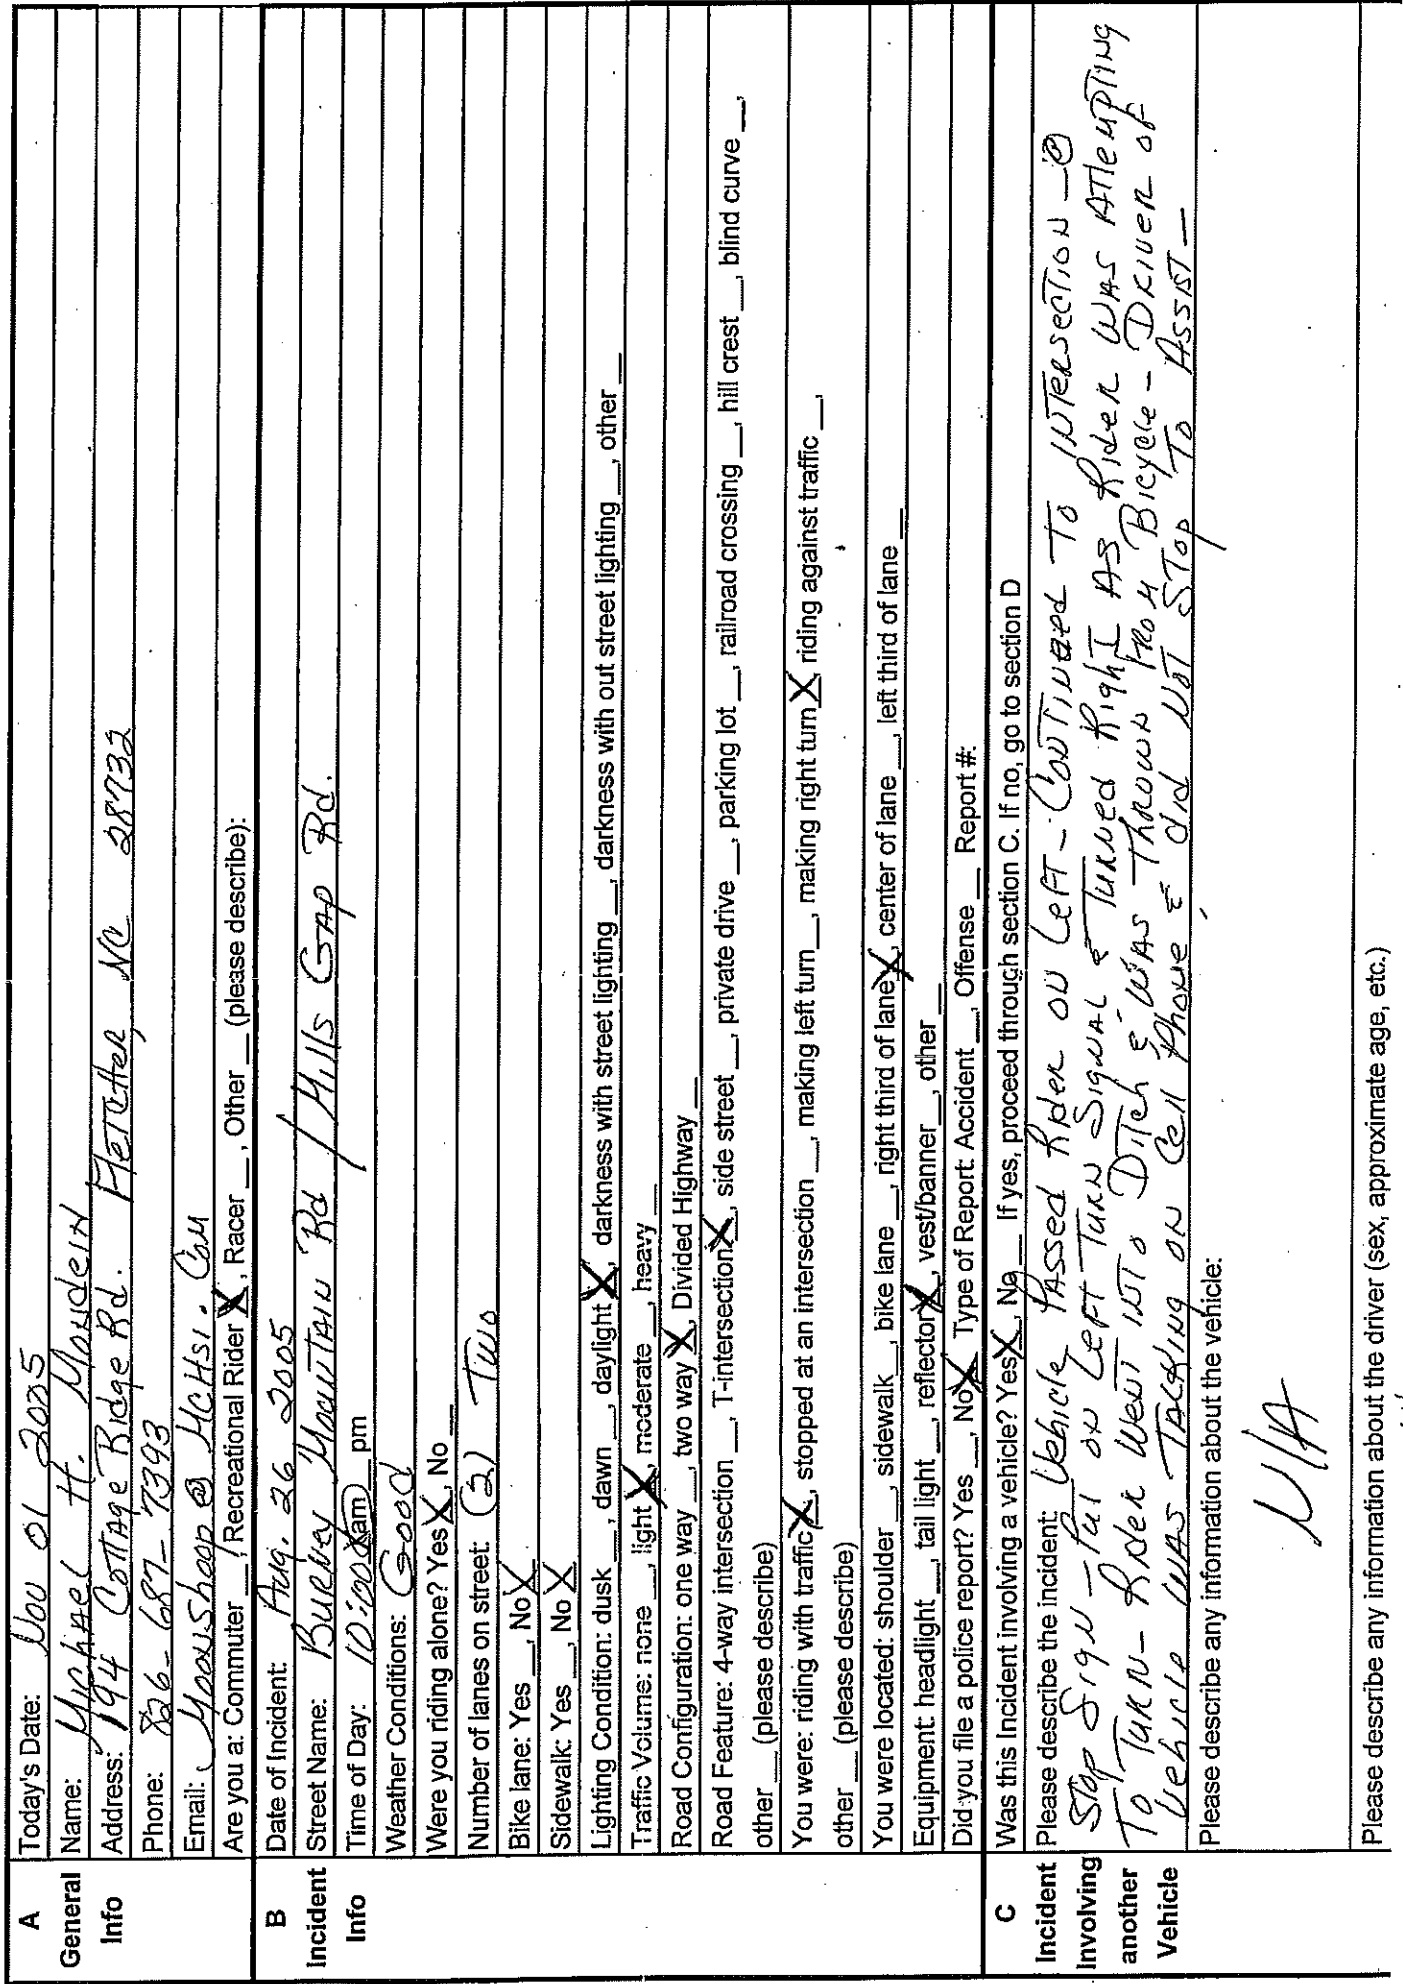 A
General
Info
Today's Date: Nov 01 2005
Name: Michael H. Mondein
Address: 194 Cottage Ridge Rd. Fletcher, NC 28732
Phone: 826-687-7393
Email: Moonshoop @ MCHSI.Com
Are you a: Commuter __, Recreational Rider X, Racer __, Other __ (please describe):
B
Incident
Info
Date of Incident: Aug. 26 2005
Street Name: Burney Mountain Rd / Mills Gap Rd.
Time of Day: 10:00 X am __ pm
Weather Conditions: Good
Were you riding alone? Yes X, No __
Number of lanes on street: (2) Two
Bike lane: Yes __, No X
Sidewalk: Yes __, No X
Lighting Condition: dusk __, dawn __, daylight X, darkness with street lighting __, darkness with out street lighting __, other __
Traffic Volume: none __, light X, moderate __, heavy __
Road Configuration: one way __, two way X, Divided Highway __
Road Feature: 4-way intersection __, T-intersection X, side street __, private drive __, parking lot __, railroad crossing __, hill crest __, blind curve __,
other __ (please describe)
You were: riding with traffic X, stopped at an intersection __, making left turn __, making right turn X, riding against traffic __,
other __ (please describe)
You were located: shoulder __, sidewalk __, bike lane __, right third of lane X, center of lane __, left third of lane __
Equipment: headlight __, tail light __, reflector X, vest/banner __, other __
Did you file a police report? Yes __, No X Type of Report: Accident __, Offense __ Report #:
C
Incident
Involving
another
Vehicle
Was this Incident involving a vehicle? Yes X, No __ If yes, proceed through section C. If no, go to section D
Please describe the incident: Vehicle Passed Rider on Left - Continued To Intersection - @
Stop Sign - Put on Left Turn Signal & Turned Right As Rider Was Attempting
To Turn - Rider Went into Ditch & Was Thrown From Bicycle - Driver of
Vehicle Was Talking on Cell Phone & did Not Stop To Assist -
Please describe any information about the vehicle:
N/A
Please describe any information about the driver (sex, approximate age, etc.)